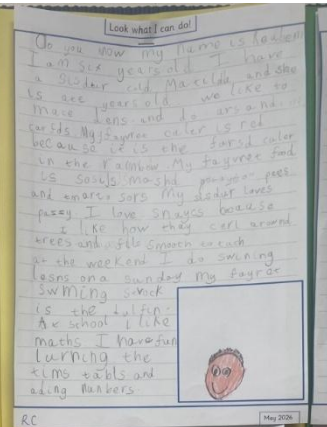 Look what I can do!
Do you now my name is
I am six years old I have
a sister cald Matilda and she
is are years old we like to
make dens and do ar and
My fayvret caler is red
because it is the farst caler
in the rainbow My fayvret food
is sosijs mashd pees
and tmarto sors My sister loves
I love snaycs because
I like how they carl around
trees and file smooth to tach
at the weekend I do swiming
lesns on a Sunday my fayrot
swming
is the
At school I like
maths I have fun
lurning the
tims tabls and
ading nambers
RC
May 2026